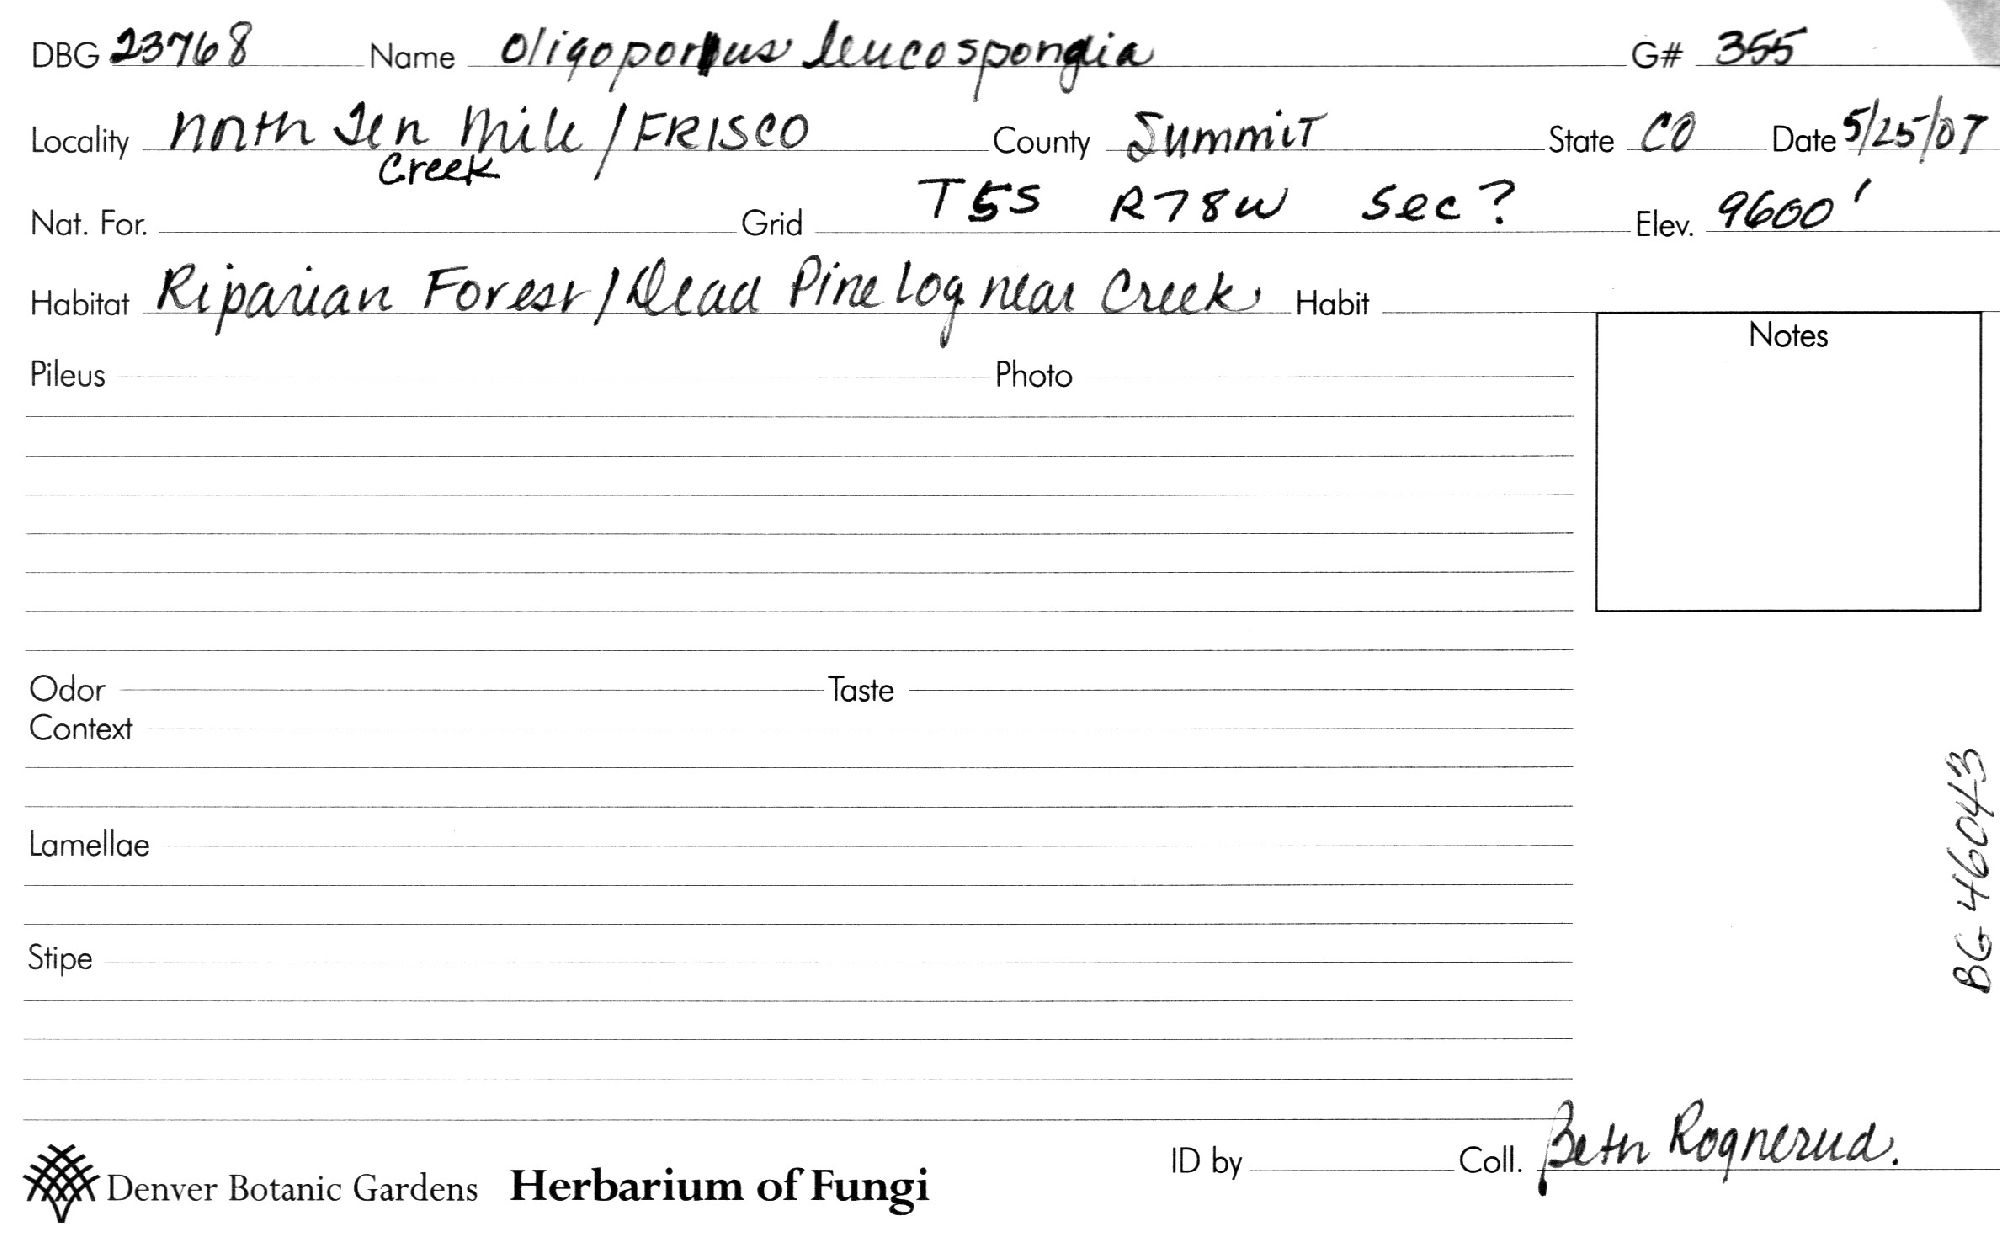 DBG 23768 Name Oligoporus leucospongia G# 355
Locality North Ten Mile / FRISCO County Summit State CO Date 5/25/07
Creek
Nat. For. Grid T5S R78W Sec ? Elev. 9600'
Habitat Riparian Forest / Dead Pine Log near Creek Habit
Notes
Pileus Photo
Odor Taste
Context
Lamellae
Stipe
BG 46043
ID by Coll. Beth Rognerud.
Denver Botanic Gardens Herbarium of Fungi